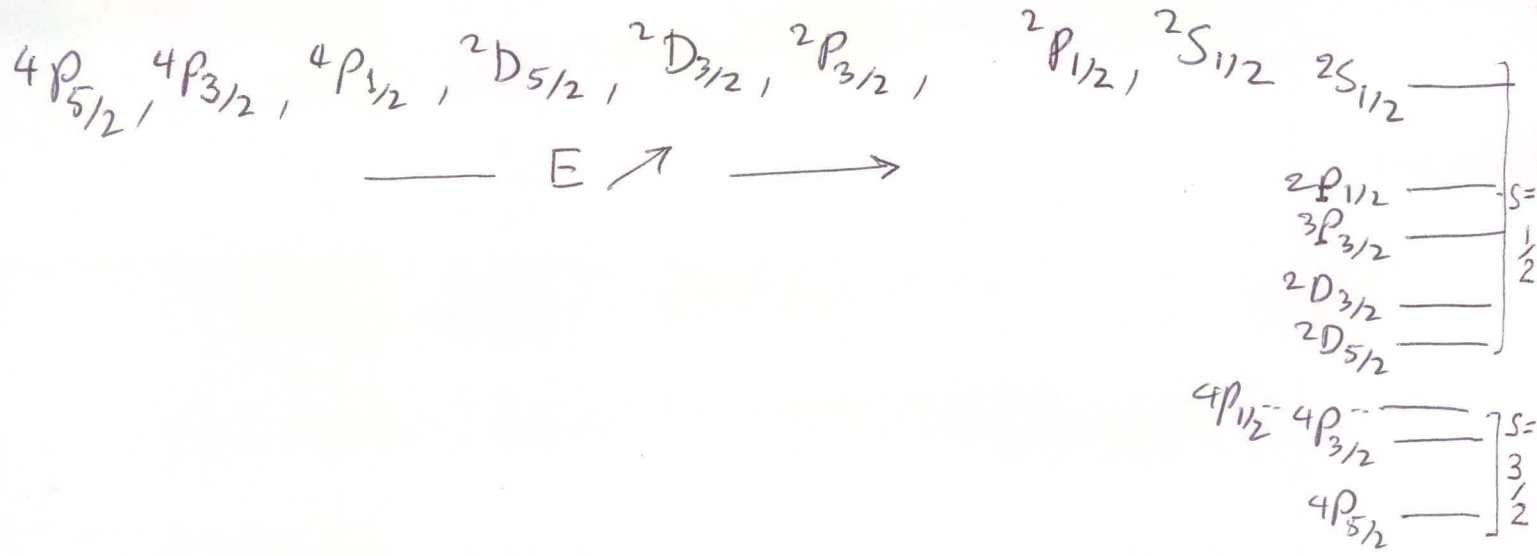 ⁴P₅/₂, ⁴P₃/₂, ⁴P₁/₂, ²D₅/₂, ²D₃/₂, ²P₃/₂, ²P₁/₂, ²S₁/₂
— E ↗ →
²S₁/₂
²P₁/₂
³P₃/₂
²D₃/₂
²D₅/₂
S= 1/2
⁴P₁/₂
⁴P₃/₂
⁴P₅/₂
S= 3/2